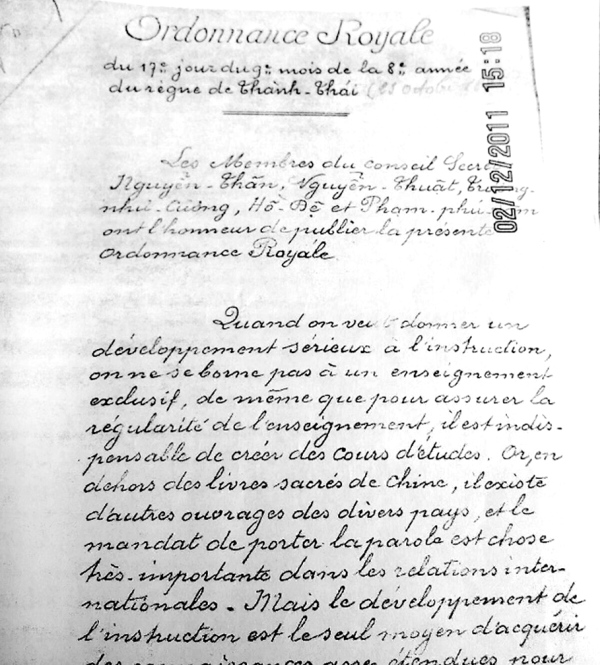 Ordonnance Royale
du 17e jour du 9e mois de la 8e année
du règne de Thành-Thái
Les Membres du Conseil
Nguyễn-Thân, Nguyễn-Thuật,
như-Cương, Hồ-Đệ et Phạm-phú-
ont l'honneur de publier la présente
Ordonnance Royale.
Quand on veut donner un
développement sérieux à l'instruction,
on ne se borne pas à un enseignement
exclusif, de même que pour assurer la
régularité de l'enseignement, il est indis-
pensable de créer des cours d'études. Or, en
dehors des livres sacrés de Chine, il existe
d'autres ouvrages des divers pays, et le
mandat de porter la parole est chose
très-importante dans les relations inter-
nationales. Mais le développement de
l'instruction est le seul moyen d'acquérir
des connaissances assez étendues pour
02/12/2011 15:18